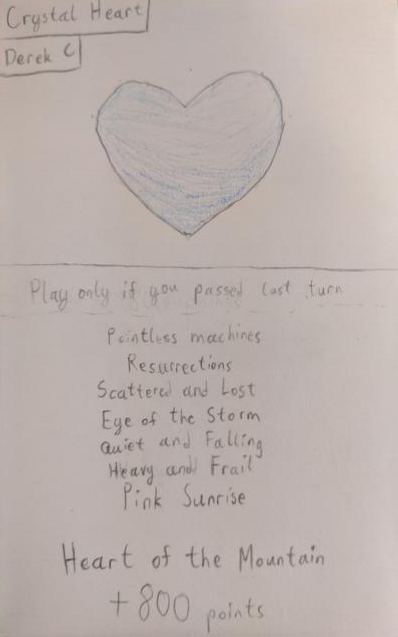 Crystal Heart
Derek C
Play only if you passed last turn
Pointless machines
Resurrections
Scattered and Lost
Eye of the Storm
Quiet and Falling
Heavy and Frail
Pink Sunrise
Heart of the Mountain
+800 points